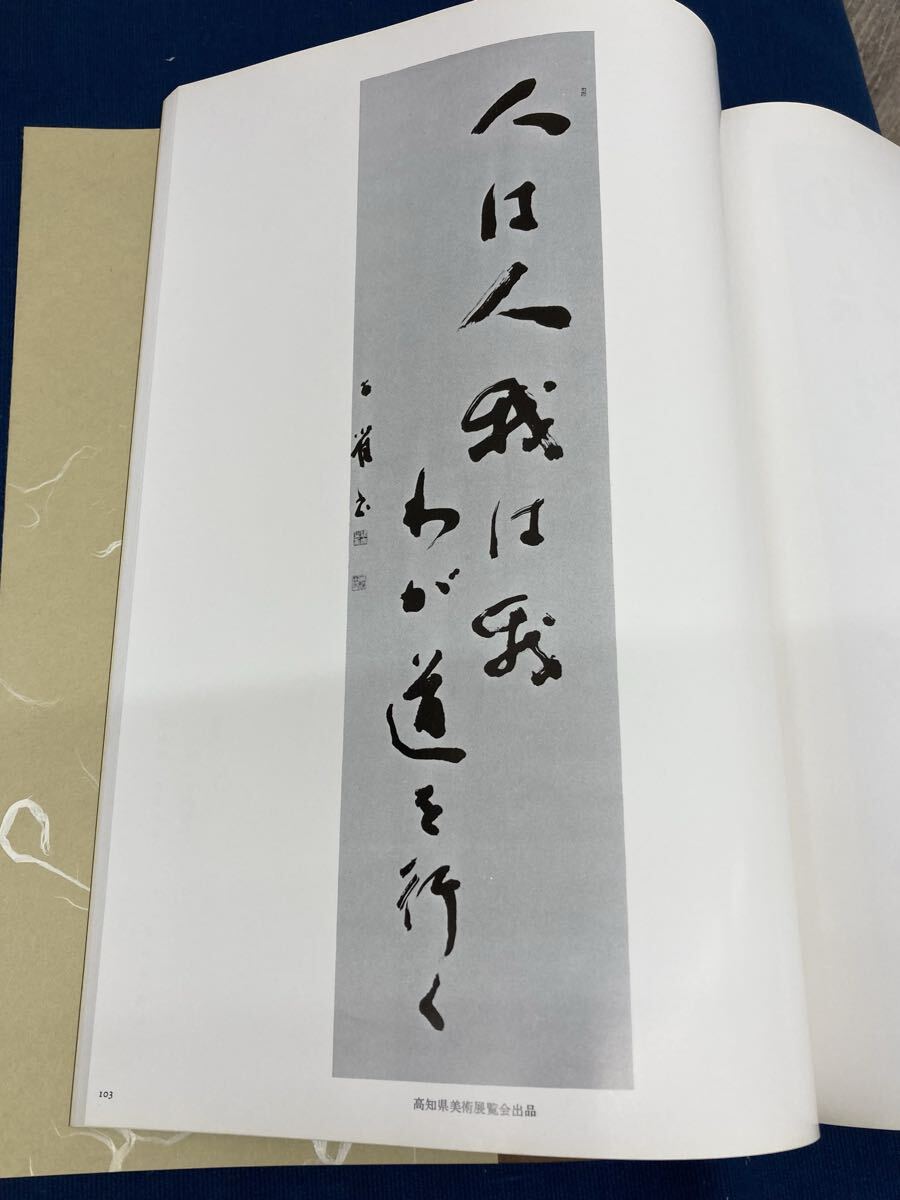 人は人我は我
わが道を行く
高知県美術展覧会出品
103